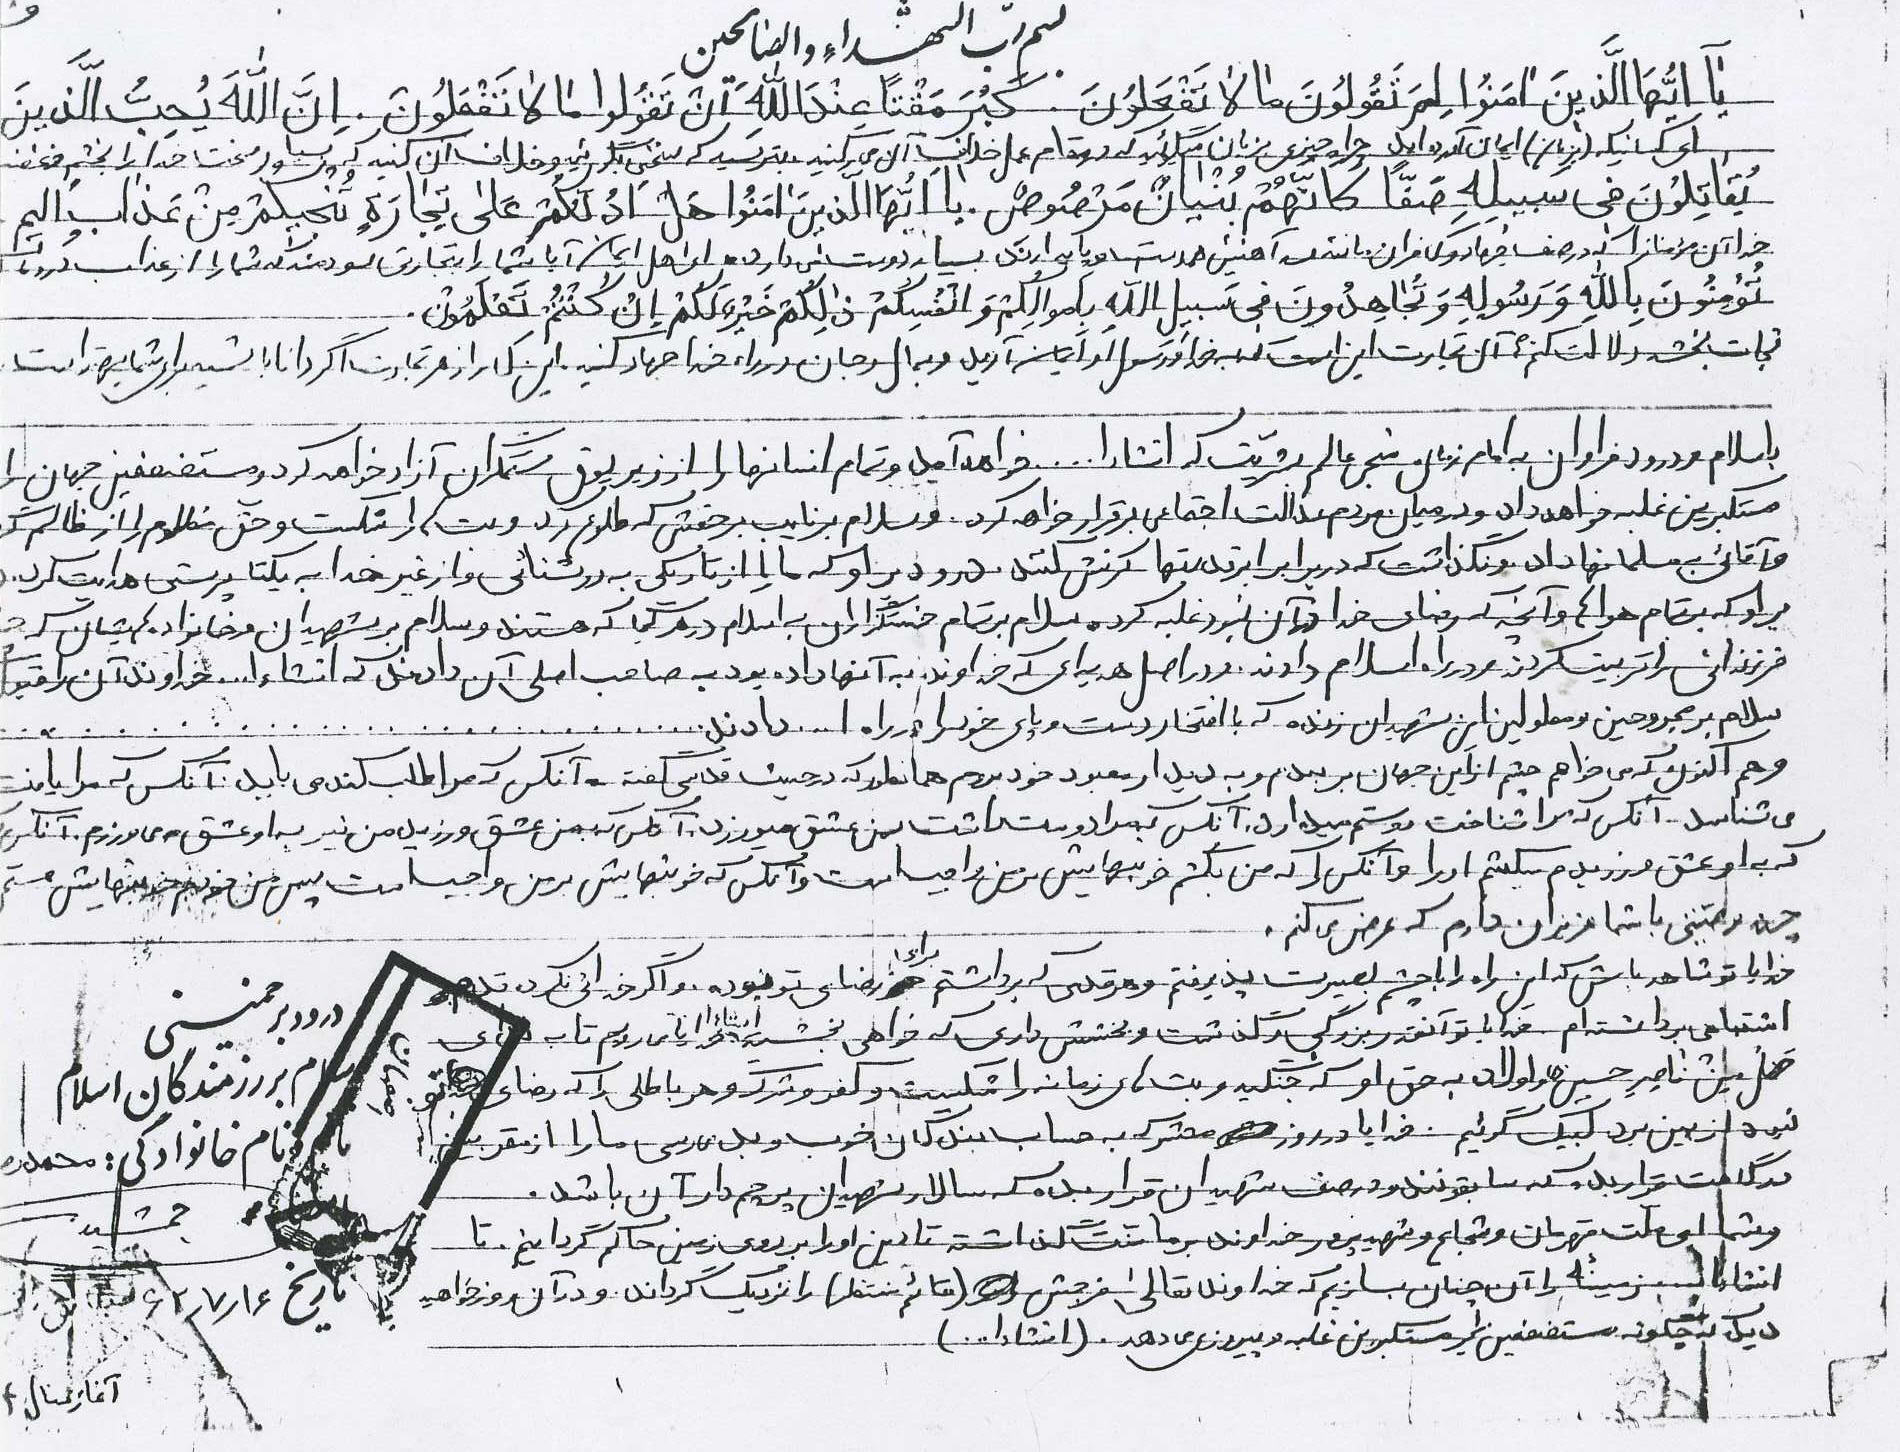 بسم رب الشهداء والصالحین
یا ایها الذین امنوا لم تقولون ما لا تفعلون . کبر مقتا عند الله ان تقولوا ما لا تفعلون . ان الله یحب الذین
ای کسانیکه (بزبان) ایمان آورده‌اید چرا چیزی بزبان میگوئید که در مقام عمل خلاف آن می‌کنید . بترسید که سخنی بگوئید و خلاف آن کنید که بسیار سخت خدا را بخشم
یقاتلون فی سبیله صفا کانهم بنیان مرصوص . یا ایها الذین امنوا هل ادلکم علی تجارة تنجیکم من عذاب الیم
خدا آن مؤمنان را که در صف جهاد با کافران مانند سد آهنین همدست و پایدارند بسیار دوست می‌دارد . ای اهل ایمان آیا شما را بتجارتی سودمند که شما را از عذاب دردناک
تؤمنون بالله و رسوله و تجاهدون فی سبیل الله باموالکم و انفسکم ذلکم خیر لکم ان کنتم تعلمون .
نجات بخشد دلالت کنم؟ آن تجارت این است که به خدا و رسول او ایمان آرید و به مال و جان در راه خدا جهاد کنید . این کار از هر تجارت اگر دانا باشید برای شما بهتر است
با سلام و درود فراوان به امام زمان منجی عالم بشریت که انشاءا.... خواهد آمد و تمام انسانها را از زیر یوق ستمگران آزاد خواهد کرد و مستضعفین جهان را
مستکبرین غلبه خواهد داد و در میان مردم عدالت اجتماعی برقرار خواهد کرد . و سلام بر نایب برحقش که طلوع کرد و بت‌ها را شکست و حق مظلوم را از ظالم
و آقائی به مسلمانها داد و نگذاشت که در برابر ابرقدرتها کرنش کنند . درود بر او که ما را از تاریکی به روشنائی و از غیر خدا به یکتا پرستی هدایت کرد .
بر او که بر تمام هواها و آنچه که رضای خدا در آن نبود غلبه کرد . سلام بر تمام خدمتگزاران به اسلام در هر کجا که هستند و سلام بر شهیدان و خانواده‌هایشان که
فرزندانی را تربیت کردند و در راه اسلام دادند . و در اصل هدیه‌ای که خداوند به آنها داده بود به صاحب اصلی آن دادند که انشاءا... خداوند آن را قبول
سلام بر مجروحین و معلولین این شهیدان زنده که با افتخار دست و پای خود را در راه ا... دادند
و هم اکنون که می‌خواهم چشم از این جهان بربندم و به دیدار معبود خود بروم همانطور که در حدیث قدسی گفته . آنکس که مرا طلب کند می‌یابد . آنکس که مرا یافت
می‌شناسد . آنکس که مرا شناخت دوستم میدارد . آنکس که مرا دوست داشت بمن عشق میورزد . آنکس که به من عشق ورزید من نیز به او عشق می‌ورزم . آنکس
که به او عشق ورزیدم میکشم او را و آنکس را که من بکشم خونبهایش بر من واجب است و آنکس که خونبهایش بر من واجب است پس من خودم خونبهایش هستم
چند وصیتی با شما عزیزان دارم که عرض می‌کنم .
خدایا تو شاهد باش که این راه را با چشم بصیرت پذیرفتم و هر قدمی که برداشتم برای رضای تو بوده . و اگر خدائی نکرده قدم
اشتباهی برداشته‌ام . خدایا تو آنقدر بزرگی و گذشت و بخشش داری که خواهی بخشید انشاءا خدایا می‌روم تا به ندای
هل من ناصر حسین و اولاد به حق او که جنگید و بت‌های زمانه را شکست و کفر و شرک و هر باطلی را که رضای تو
نبود از بین برد لبیک گوئیم . خدایا در روز محشر که به حساب بندگان خوب و بد می‌رسی ما را از مقربین
درگاهت قرار بده که سابقونند و در صف شهیدان قرار بده که سالار شهیدان پرچمدار آن باشد .
و شما ای ملت قهرمان و شجاع و شهیدپرور خداوند بر ما منت گذاشته تا دین او را بر روی زمین حاکم گردانیم . تا
انشاءا زمینه را آن چنان بسازیم که خداوند تعالی فرجش (قائم منتظر) را نزدیک گرداند و در آن روز خواهید
دید که چگونه مستضعفین بر مستکبرین غلبه و پیروزی می‌دهد . (انشاءا...)
درود بر خمینی
سلام بر رزمندگان اسلام
نام و نام خانوادگی : محمد
جمشید
تاریخ ۶۲/۷/۱۶
اصفهان